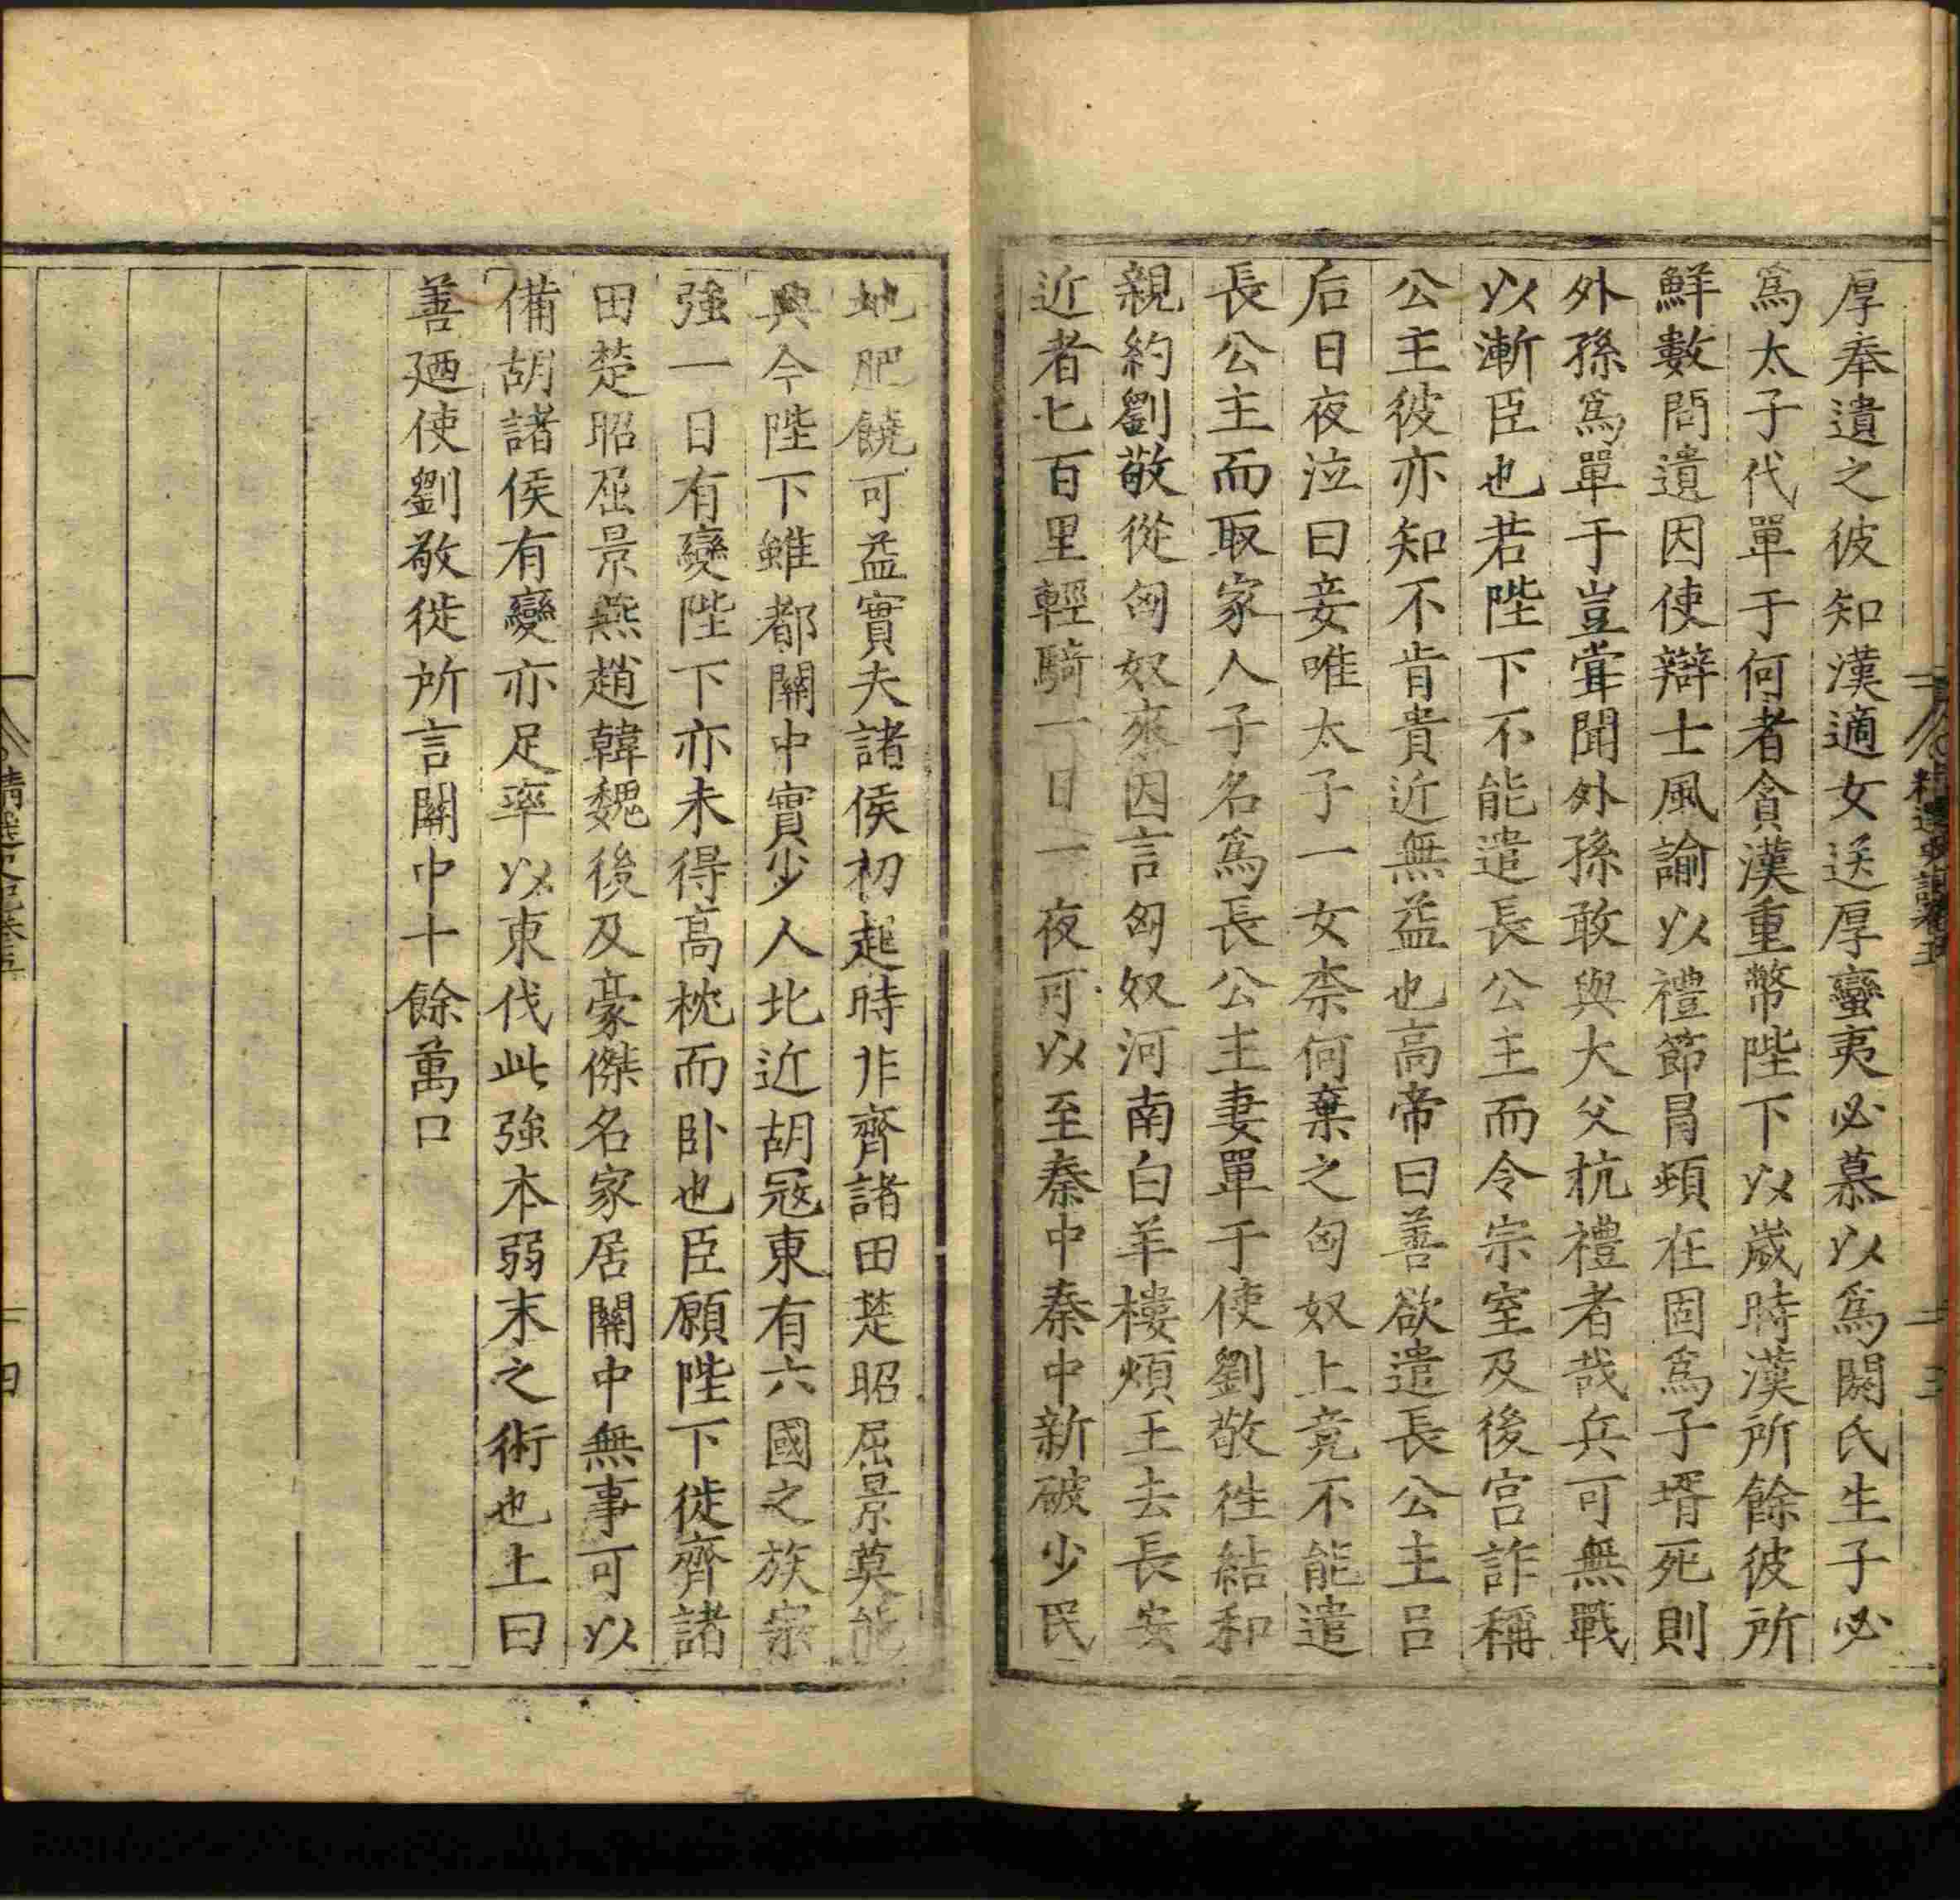 厚奉遺之彼知漢適女送厚蠻夷必慕以爲閼氏生子必
爲太子代單于何者貪漢重幣陛下以歲時漢所餘彼所
鮮數問遺因使辯士風諭以禮節冐頓在固爲子壻死則
外孫爲單于豈甞聞外孫敢與大父抗禮者哉兵可無戰
以漸臣也若陛下不能遣長公主而令宗室及後宮詐稱
公主彼亦知不肯貴近無益也高帝曰善欲遣長公主吕
后日夜泣曰妾唯太子一女柰何棄之匈奴上竟不能遣
長公主而取家人子名爲長公主妻單于使劉敬徃結和
親約劉敬從匈奴來因言匈奴河南白羊樓煩王去長安
近者七百里輕騎一日一夜可以至秦中秦中新破少民
地肥饒可益實夫諸侯初起時非齊諸田楚昭屈景莫能
興今陛下雖都關中實少人北近胡冦東有六國之族宗
強一日有變陛下亦未得高枕而卧也臣願陛下徙齊諸
田楚昭屈景燕趙韓魏後及豪傑名家居關中無事可以
備胡諸侯有變亦足率以東伐此強本弱末之術也上曰
善廼使劉敬徙所言關中十餘萬口